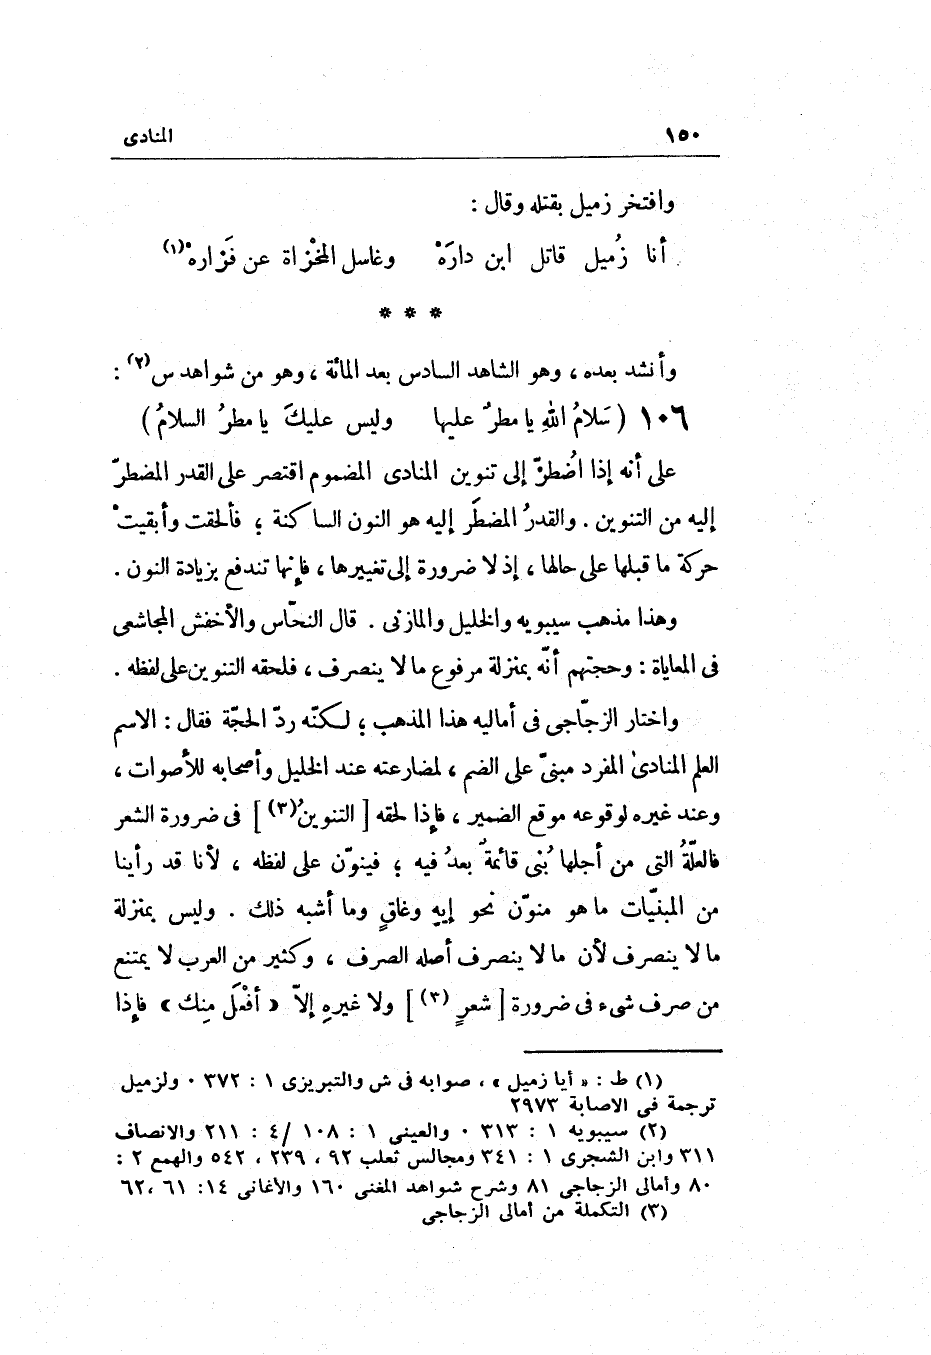 ١٥٠ المنادى
وافتخر زميل بقتله وقال :
أنا زُميل قاتل ابن دارَهْ وغاسل المخْزاة عن فَزارهْ(١)
* * *
وأنشد بعده ، وهو الشاهد السادس بعد المائة ، وهو من شواهد س(٢) :
١٠٦ (سَلامُ اللهِ يا مطرٌ عليها وليس عليكَ يا مطرُ السلامُ)
على أنه إذا اضُطرّ إلى تنوين المنادى المضموم اقتصر على القدر المضطرّ
إليه من التنوين . والقدرُ المضطَر إليه هو النون الساكنة ؛ فألحقت وأبقيتْ
حركة ما قبلها على حالها ، إذ لا ضرورة إلى تغييرها ، فإنها تندفع بزيادة النون .
وهذا مذهب سيبويه والخليل والمازنى . قال النحّاس والأخفش المجاشعى
فى المعاياة : وحجتهم أنّه بمنزلة مرفوع ما لا ينصرف ، فلحقه التنوين على لفظه .
واختار الزجّاجى فى أماليه هذا المذهب ؛ لكنّه ردّ الحجّة فقال : الاسم
العلم المنادىٰ المفرد مبنىّ على الضم ، لمضارعته عند الخليل وأصحابه للأصوات ،
وعند غيره لوقوعه موقع الضمير ، فإذا لحقه [ التنوينُ(٣) ] فى ضرورة الشعر
فالعلّةُ التى من أجلها بُنى قائمةٌ بعدُ فيه ؛ فينوّن على لفظه ، لأنا قد رأينا
من المبنيّات ما هو منوّن نحو إيهٍ وغاقٍ وما أشبه ذلك . وليس بمنزلة
ما لا ينصرف لأن ما لا ينصرف أصله الصرف ، وكثير من العرب لا يمتنع
من صرف شىء فى ضرورة [ شعرٍ (٣) ] ولا غيرِه إلاّ « أفْعلَ مِنك » فإذا
(١) ط : « أيا زميل » ، صوابه فى ش والتبريزى ١ : ٣٧٢ . ولزميل
ترجمة فى الاصابة ٢٩٧٣
(٢) سيبويه ١ : ٣١٣ . والعينى ١ : ١٠٨ /٤ : ٢١١ والانصاف
٣١١ وابن الشجرى ١ : ٣٤١ ومجالس ثعلب ٩٢ ، ٢٣٩ ، ٥٤٢ والهمع ٢ :
٨٠ وأمالى الزجاجى ٨١ وشرح شواهد المغنى ١٦٠ والأغانى ١٤: ٦١ ،٦٢
(٣) التكملة من أمالى الزجاجى